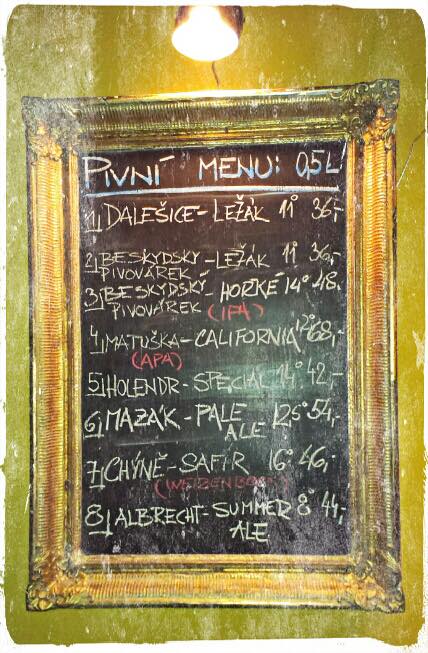 PIVNÍ MENU: 0,5L
1, DALEŠICE - LEŽÁK 11° 36,-
2, BESKYDSKÝ - LEŽÁK 11° 36,-
PIVOVÁREK
3, BESKYDSKÝ - HOŘKÉ 14° 48,-
PIVOVÁREK (IPA)
4, MATUŠKA - CALIFORNIA 12° 68,-
(APA)
5, HOLENDR - SPECIAL 14° 42,-
6, MAZÁK - PALE 12,5° 54,-
ALE
7, CHÝNĚ - SAFÍR 16° 46,-
(WEIZENBOCK)
8, ALBRECHT - SUMMER 8° 44,-
ALE